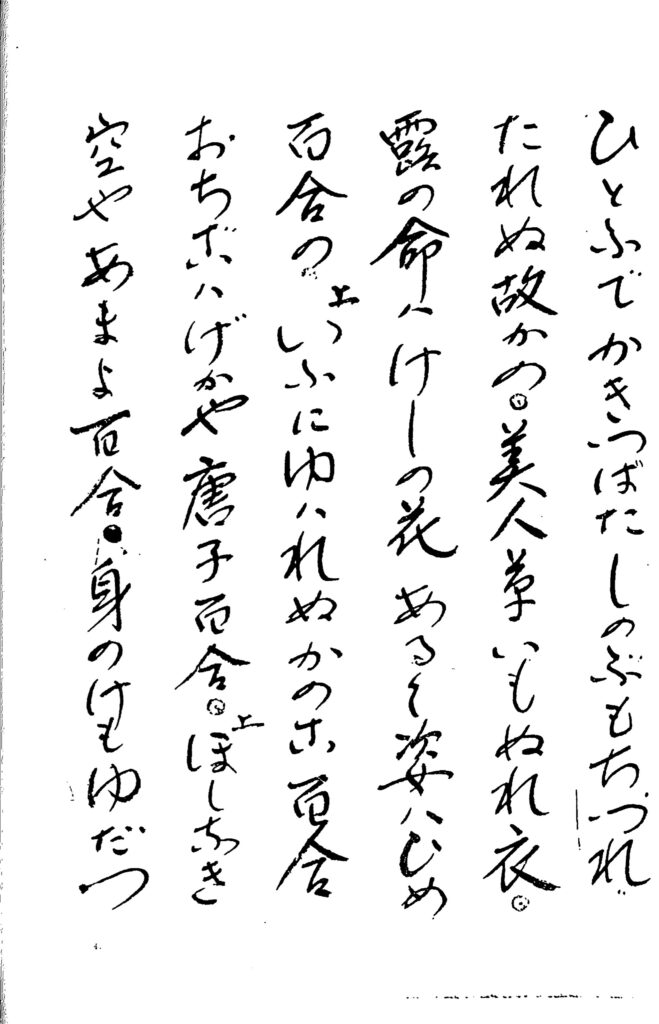 ひとふでかきつばたしのぶもちづれ
たれぬ故かの。美人草いもぬれ衣。
露の命ハけしの花あるは姿ハひめ
百合の上いふにゆハれぬかのこ百合
おちごハげかや唐子百合。上ほしなき
空やあまよ百合●身のけもゆだつ